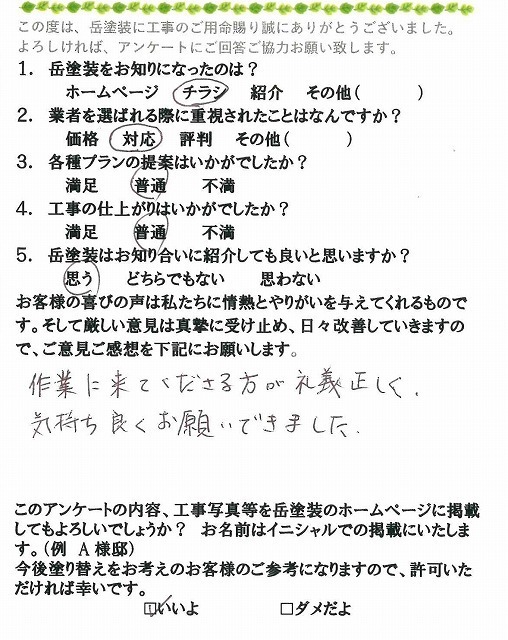 この度は、岳塗装に工事のご用命賜り誠にありがとうございました。
よろしければ、アンケートにご回答ご協力お願い致します。
1. 岳塗装をお知りになったのは？
ホームページ　チラシ　紹介　その他(　　　)
2. 業者を選ばれる際に重視されたことはなんですか？
価格　対応　評判　その他(　　　)
3. 各種プランの提案はいかがでしたか？
満足　普通　不満
4. 工事の仕上がりはいかがでしたか？
満足　普通　不満
5. 岳塗装はお知り合いに紹介しても良いと思いますか？
思う　どちらでもない　思わない
お客様の喜びの声は私たちに情熱とやりがいを与えてくれるもので
す。そして厳しい意見は真摯に受け止め、日々改善していきますの
で、ご意見ご感想を下記にお願いします。
作業に来てくださる方が礼義正しく、
気持ち良くお願いできました。
このアンケートの内容、工事写真等を岳塗装のホームページに掲載
してもよろしいでしょうか？　お名前はイニシャルでの掲載にいたしま
す。(例　A 様邸)
今後塗り替えをお考えのお客様のご参考になりますので、許可いた
だければ幸いです。
☑いいよ　□ダメだよ